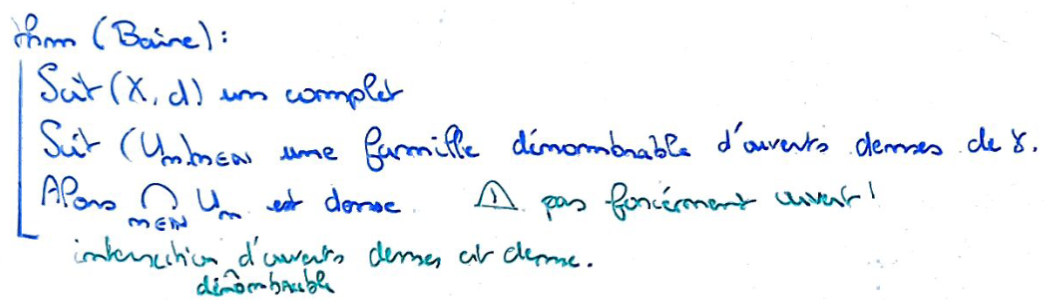 thm (Baire):
Soit (X, d) un complet
Soit (Un)n∈ℕ une famille dénombrable d'ouverts denses de X.
Alors ⋂ Un est dense. ⚠ pas forcément ouvert !
n∈ℕ
intersection d'ouverts denses est dense.
dénombrable